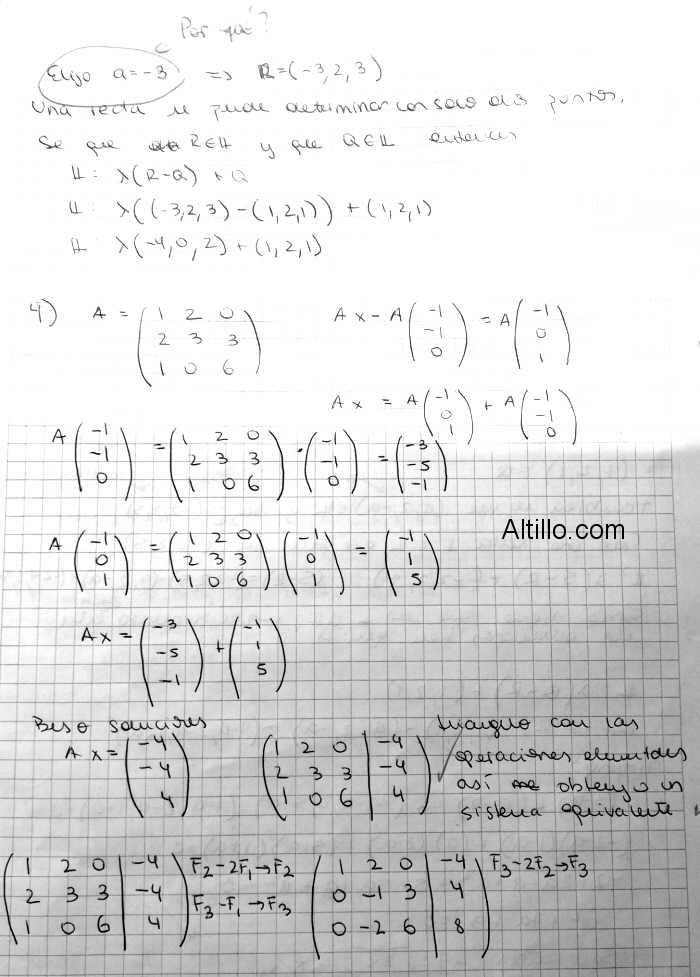 ¿Por qué?
Elijo a=-3 => R=(-3,2,3)
Una recta se puede determinar con solo dos puntos.
Se que R∈𝕃 y que Q∈𝕃 entonces
𝕃: λ(R-Q)+Q
𝕃: λ((-3,2,3)-(1,2,1))+(1,2,1)
𝕃: λ(-4,0,2)+(1,2,1)
4) A = (1 2 0 / 2 3 3 / 1 0 6) Ax - A(-1 / -1 / 0) = A(-1 / 0 / 1)
Ax = A(-1 / 0 / 1) + A(-1 / -1 / 0)
A(-1 / -1 / 0) = (1 2 0 / 2 3 3 / 1 0 6) · (-1 / -1 / 0) = (-3 / -5 / -1)
Altillo.com
A(-1 / 0 / 1) = (1 2 0 / 2 3 3 / 1 0 6) (-1 / 0 / 1) = (-1 / 1 / 5)
Ax = (-3 / -5 / -1) + (-1 / 1 / 5)
Busco soluciones
Ax = (-4 / -4 / 4) (1 2 0 | -4 / 2 3 3 | -4 / 1 0 6 | 4)
triangulo con las
operaciones elementales
así obtengo un
sistema equivalente
(1 2 0 | -4 / 2 3 3 | -4 / 1 0 6 | 4) F₂-2F₁→F₂ F₃-F₁→F₃ (1 2 0 | -4 / 0 -1 3 | 4 / 0 -2 6 | 8) F₃-2F₂→F₃